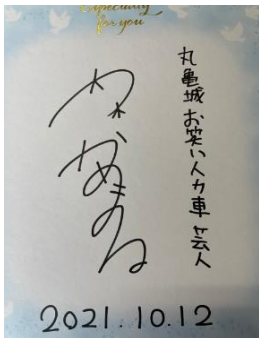 Especially
for you
丸亀城お笑い人力車芸人
2021.10.12